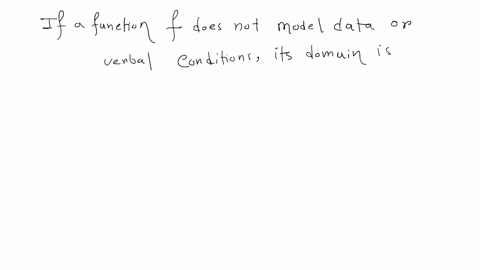 If a function f does not model data or
verbal conditions, its domain is